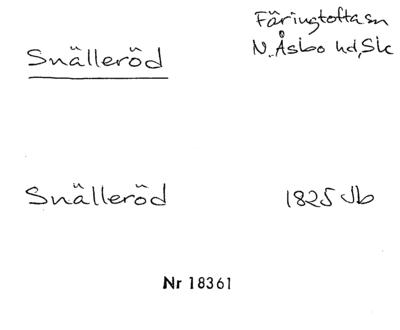 Snälleröd
Färingtofta sn
N. Åsbo hd, Sk
Snälleröd
1825 Jb
Nr 18361